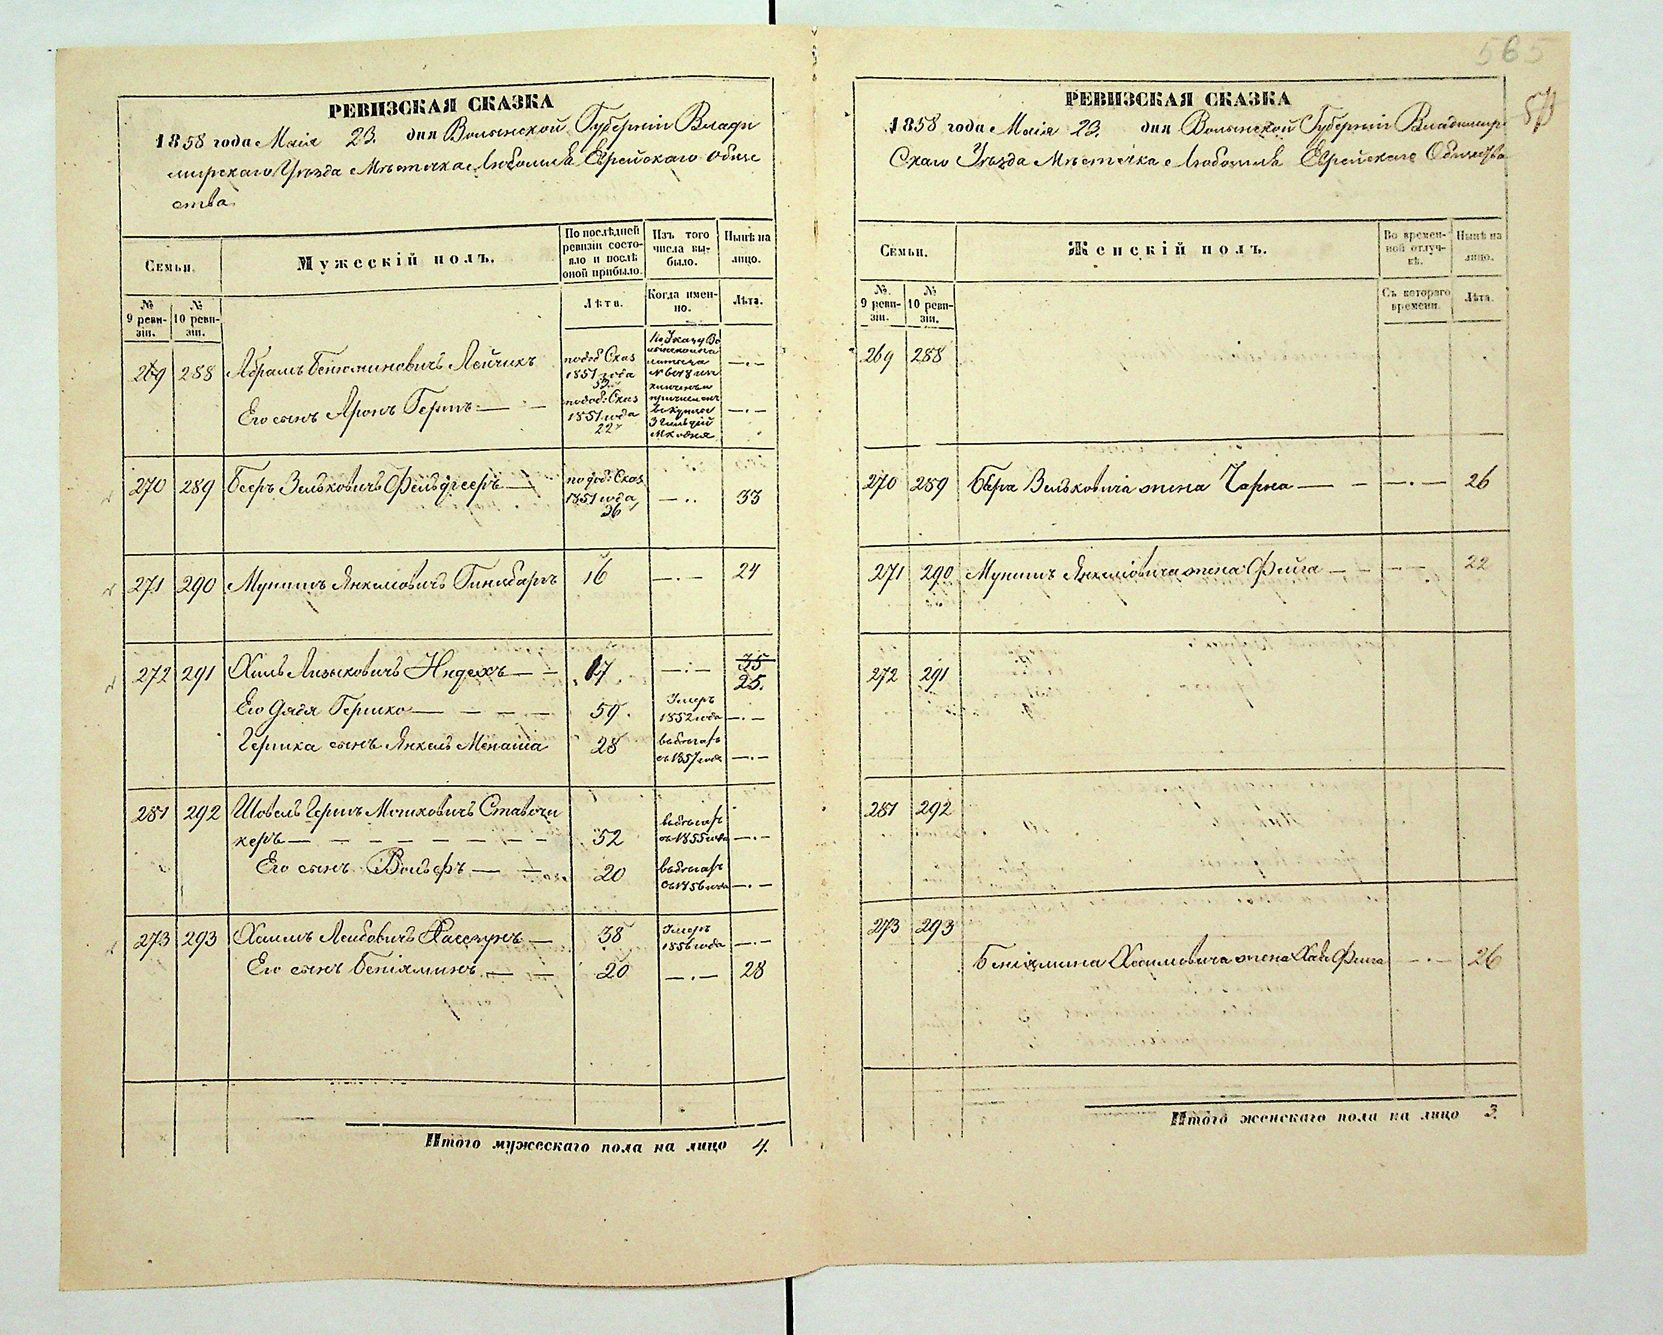 565
РЕВИЗСКАЯ СКАЗКА
1858 года Маія 23. дня Волынской Губерніи Влади
мирскаго Уѣзда Мѣстечка Любомля Еврейскаго обще
ства
Семьи.
Мужескій полъ.
По послѣдней ревизіи состояло и послѣ оной прибыло.
Изъ того числа выбыло.
Нынѣ на лицо.
№ 9 ревизіи.
№ 10 ревизіи.
Лѣта.
Когда именно.
Лѣта.
269 288 Абрамъ Беніоминовичъ Лейчикъ
по доб. Сказ 1851 года 53
По Указу
Его сынъ Аронъ Гершъ — по доб. Сказ 1851 года 22
3 Гильдіи
270 289 Бееръ Зельковичъ Фельдгееръ — по доб. Сказ 1851 года 26 —.. 33
271 290 Мунишъ Янкелювичъ 16 —.— 24
272 291 Хиль 17 —.— 35 25.
Его дядя Гершко — — — 59. Умеръ 1852 года —.—
Гершка сынъ Янкель Менаша 28 въ бѣгахъ съ 1857 года —.—
281 292 Шовель Гершъ Мошковичъ Ставочи
керъ — — — 52 въ бѣгахъ съ 1855 года —.—
Его сынъ Вольфъ — — 20 въ бѣгахъ съ 1856 года —.—
273 293 Хаимъ Лейбовичъ — 38 Умеръ 1856 года —.—
Его сынъ Беніяминъ — — 20 —.— 28
Итого мужескаго пола на лицо 4.
РЕВИЗСКАЯ СКАЗКА
1858 года Маія 23. дня Волынской Губерніи Владимир
скаго Уѣзда Мѣстечка Любомля Еврейскаго Общества
Семьи.
Женскій полъ.
Во временной отлучкѣ.
Нынѣ на лицо.
№ 9 ревизіи.
№ 10 ревизіи.
Съ котораго времени.
Лѣта.
269 288
270 289 Бера Зельковича жена Чарна — — —.— 26
271 290 Мунишъ Янкелювича жена Фейга — — — 22
272 291
281 292
273 293
Беніямина Хаимовича жена Хая Фейга —.— 26
Итого женскаго пола на лицо 3.